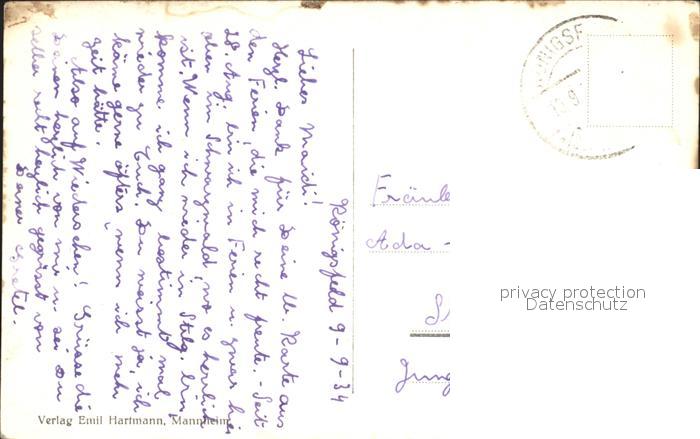 Königsfeld 9-9-34
Liebes Maidi!
Herzl. Dank für Deine lb. Karte aus
den Ferien, die mich recht freute. - Seit
28. Aug. bin ich in Ferien u. zwar hier
oben im Schwarzwald, wo es herrlich
ist. Wenn ich wieder in Stbg. bin,
komme ich ganz bestimmt mal
wieder zu Euch. Du weisst ja, ich
käme gerne öfters, wenn ich mehr
Zeit hätte.
Also auf Wiedersehen! Grüsse die
Deinen herzlich von mir u. sei Du
selber recht herzlich gegrüsst von
Deiner Gretel.
KÖNIGSF
10.9
Fräule
Ada -
S
Jung
privacy protection
Datenschutz
Verlag Emil Hartmann, Mannheim